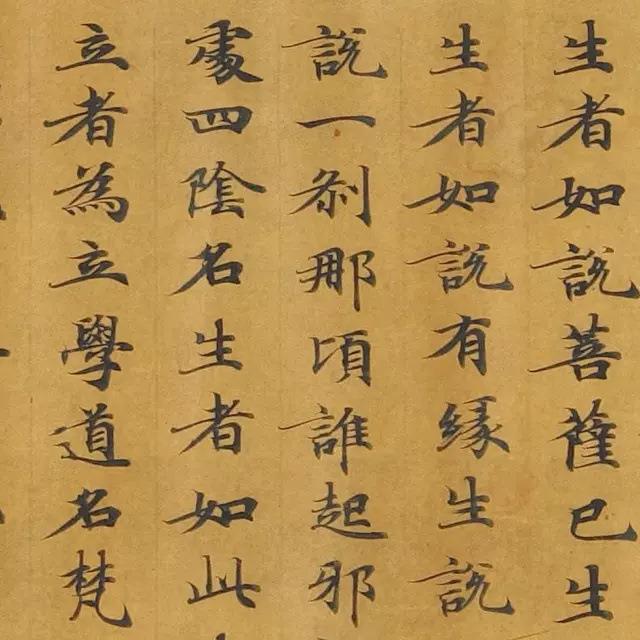 生者如說菩薩已生
生者如說有緣生說
說一剎那頃誰起邪
處四陰名生者如此
立者為立學道名梵